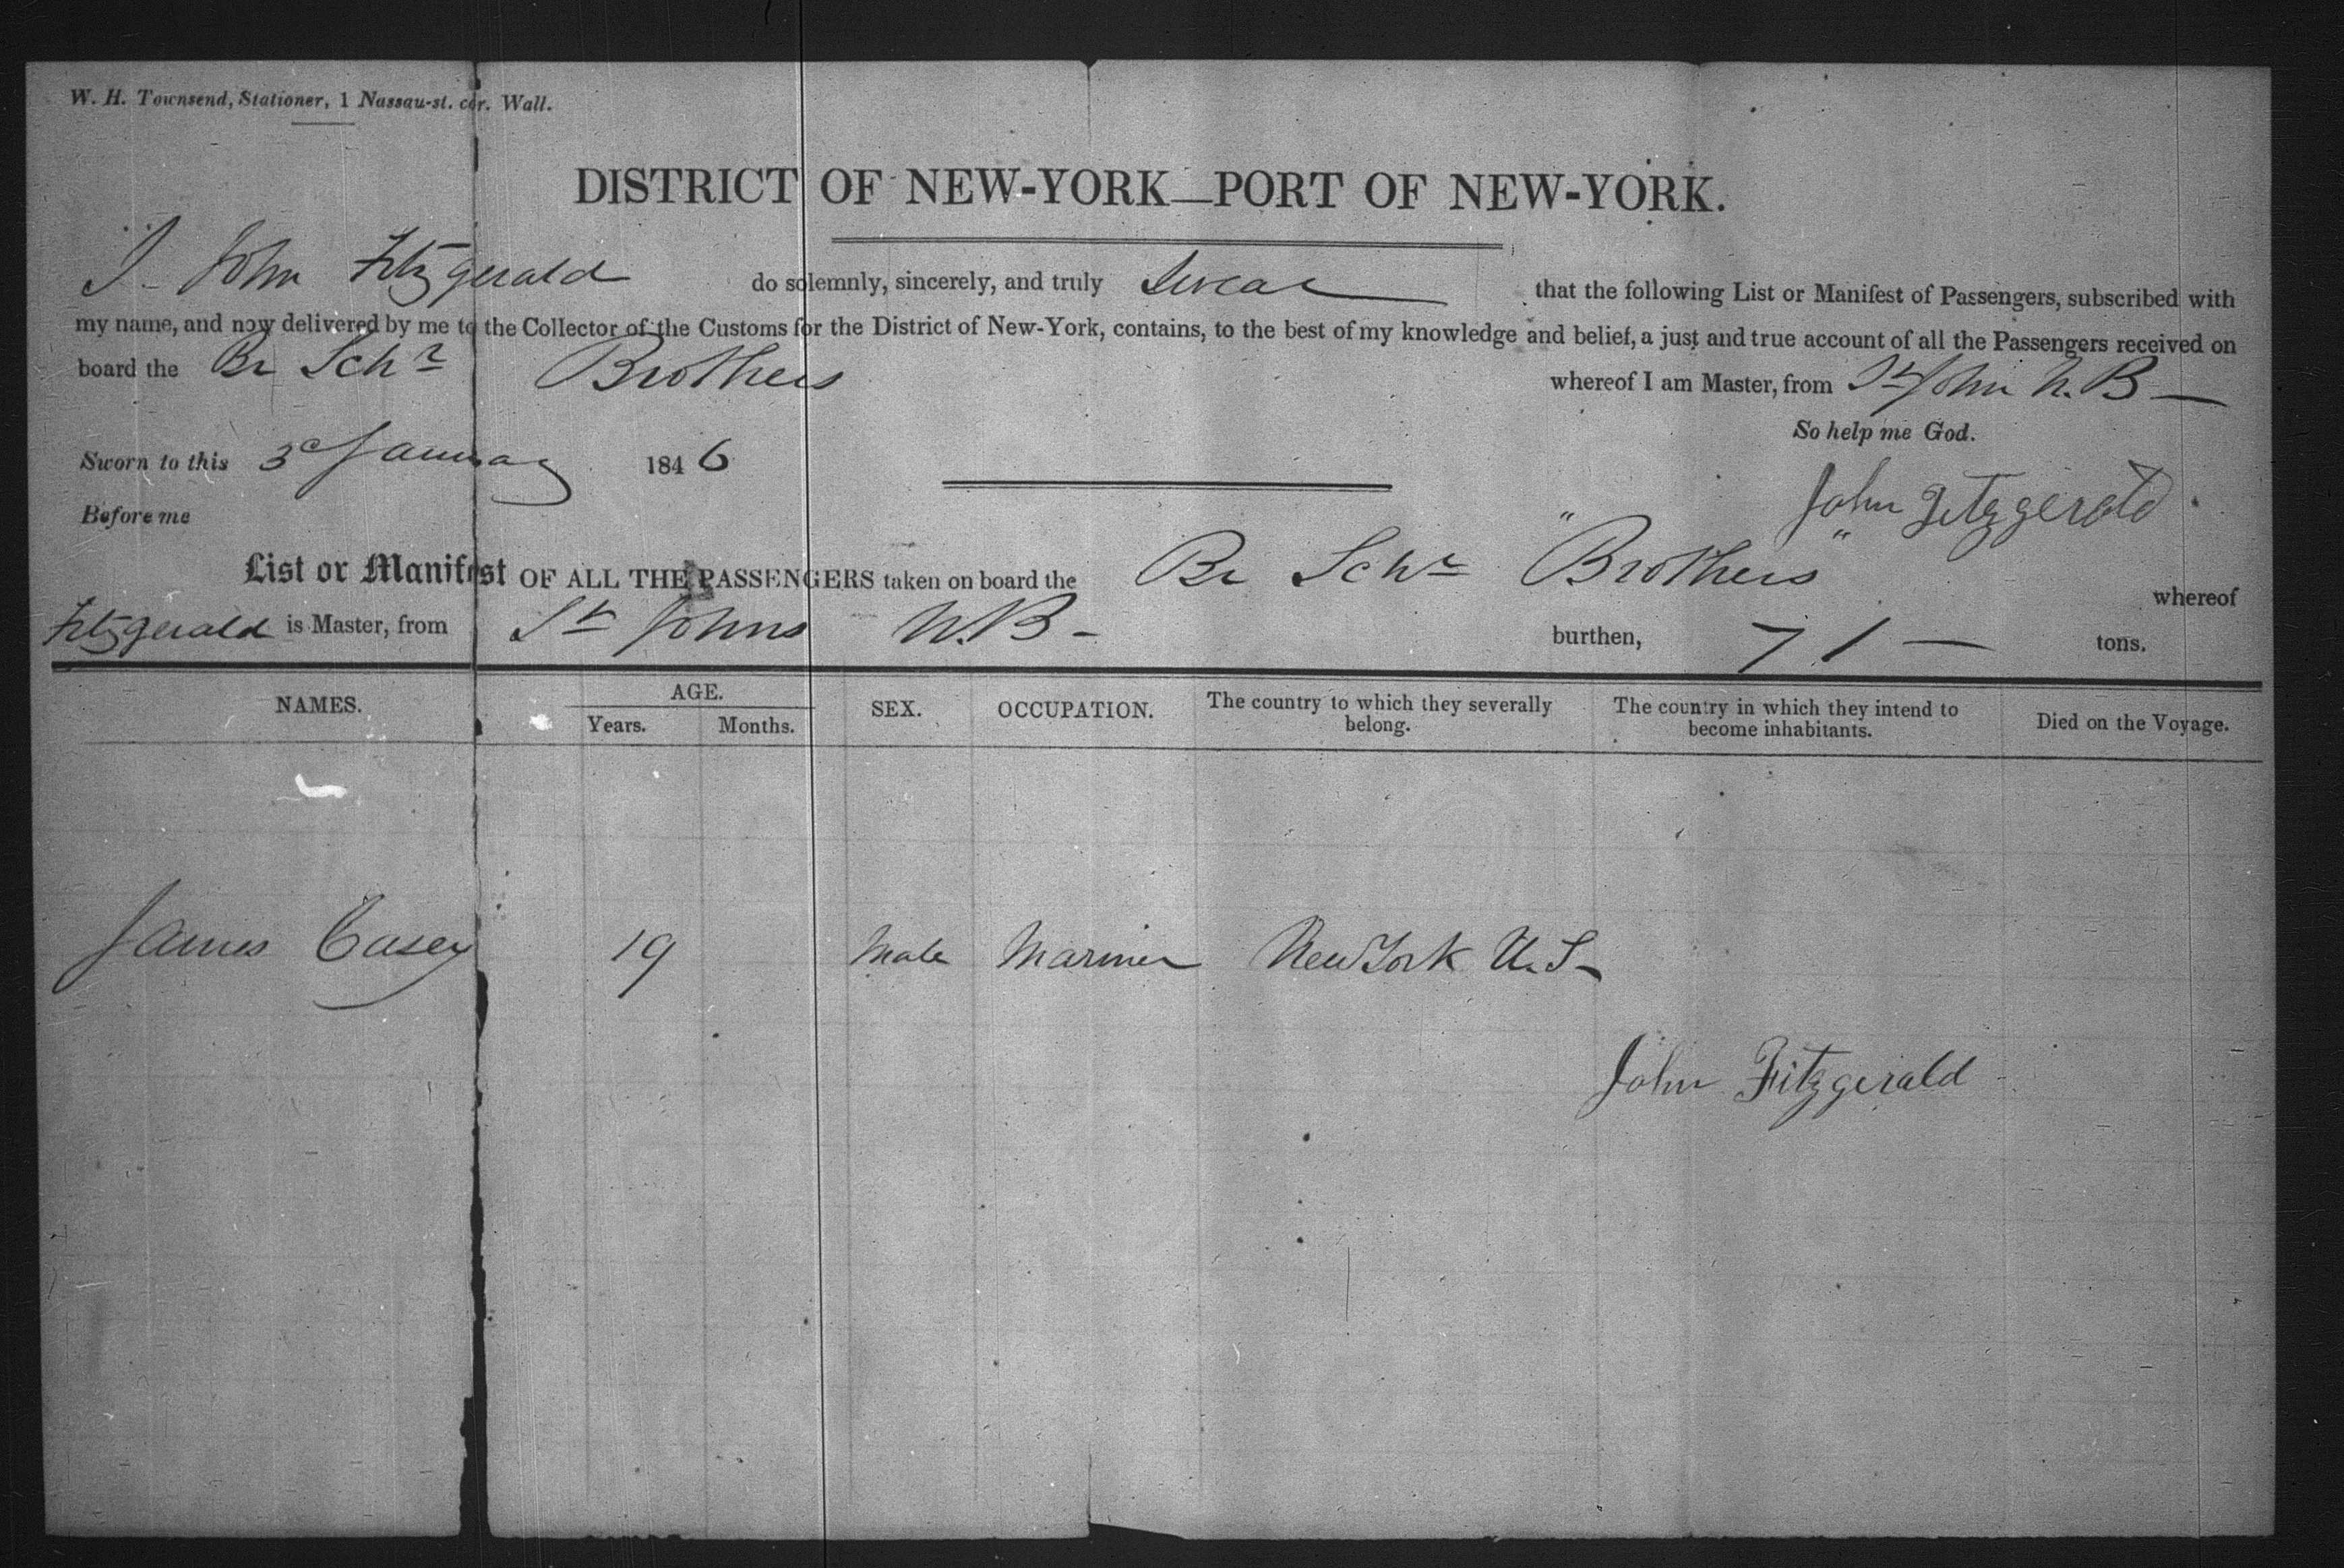 W. H. Townsend, Stationer, 1 Nassau-st. cor. Wall.
DISTRICT OF NEW-YORK—PORT OF NEW-YORK.
I John Fitzgerald do solemnly, sincerely, and truly Swear that the following List or Manifest of Passengers, subscribed with
my name, and now delivered by me to the Collector of the Customs for the District of New-York, contains, to the best of my knowledge and belief, a just and true account of all the Passengers received on
board the Br Schr Brothers whereof I am Master, from St John N. B—
So help me God.
Sworn to this 3d January 1846
John Fitzgerald
Before me
List or Manifest OF ALL THE PASSENGERS taken on board the Br Schr "Brothers" whereof
Fitzgerald is Master, from St Johns N. B— burthen, 71— tons.
NAMES. AGE. SEX. OCCUPATION. The country to which they severally belong. The country in which they intend to become inhabitants. Died on the Voyage.
Years. Months.
James Casey 19 Male Mariner New York U. S—
John Fitzgerald